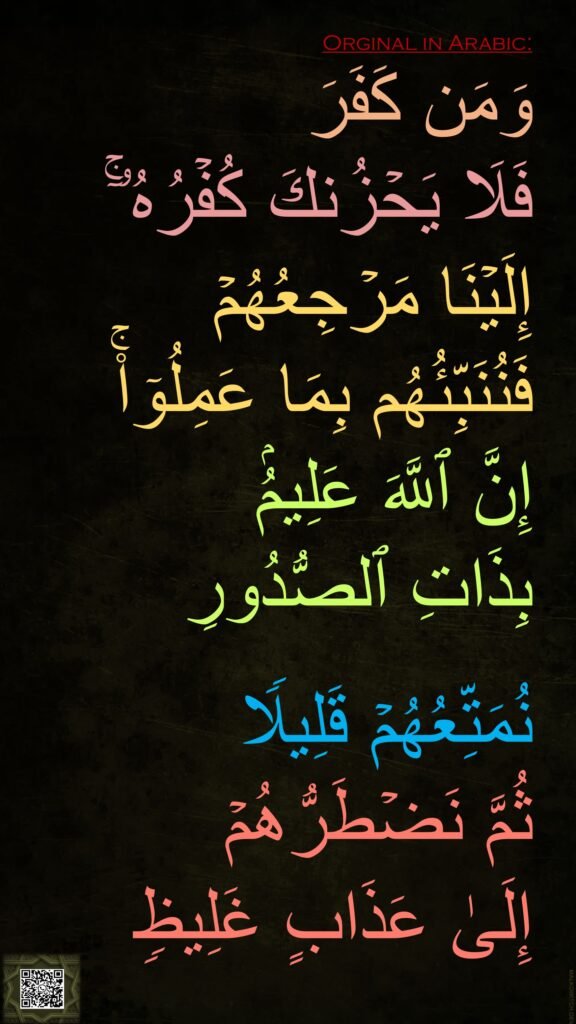 Orginal in Arabic:
وَمَن كَفَرَ
فَلَا يَحْزُنكَ كُفْرُهُۥٓ ۚ
إِلَيْنَا مَرْجِعُهُمْ
فَنُنَبِّئُهُم بِمَا عَمِلُوٓا۟ ۚ
إِنَّ ٱللَّهَ عَلِيمٌۢ
بِذَاتِ ٱلصُّدُورِ
نُمَتِّعُهُمْ قَلِيلًا
ثُمَّ نَضْطَرُّهُمْ
إِلَىٰ عَذَابٍ غَلِيظٍ